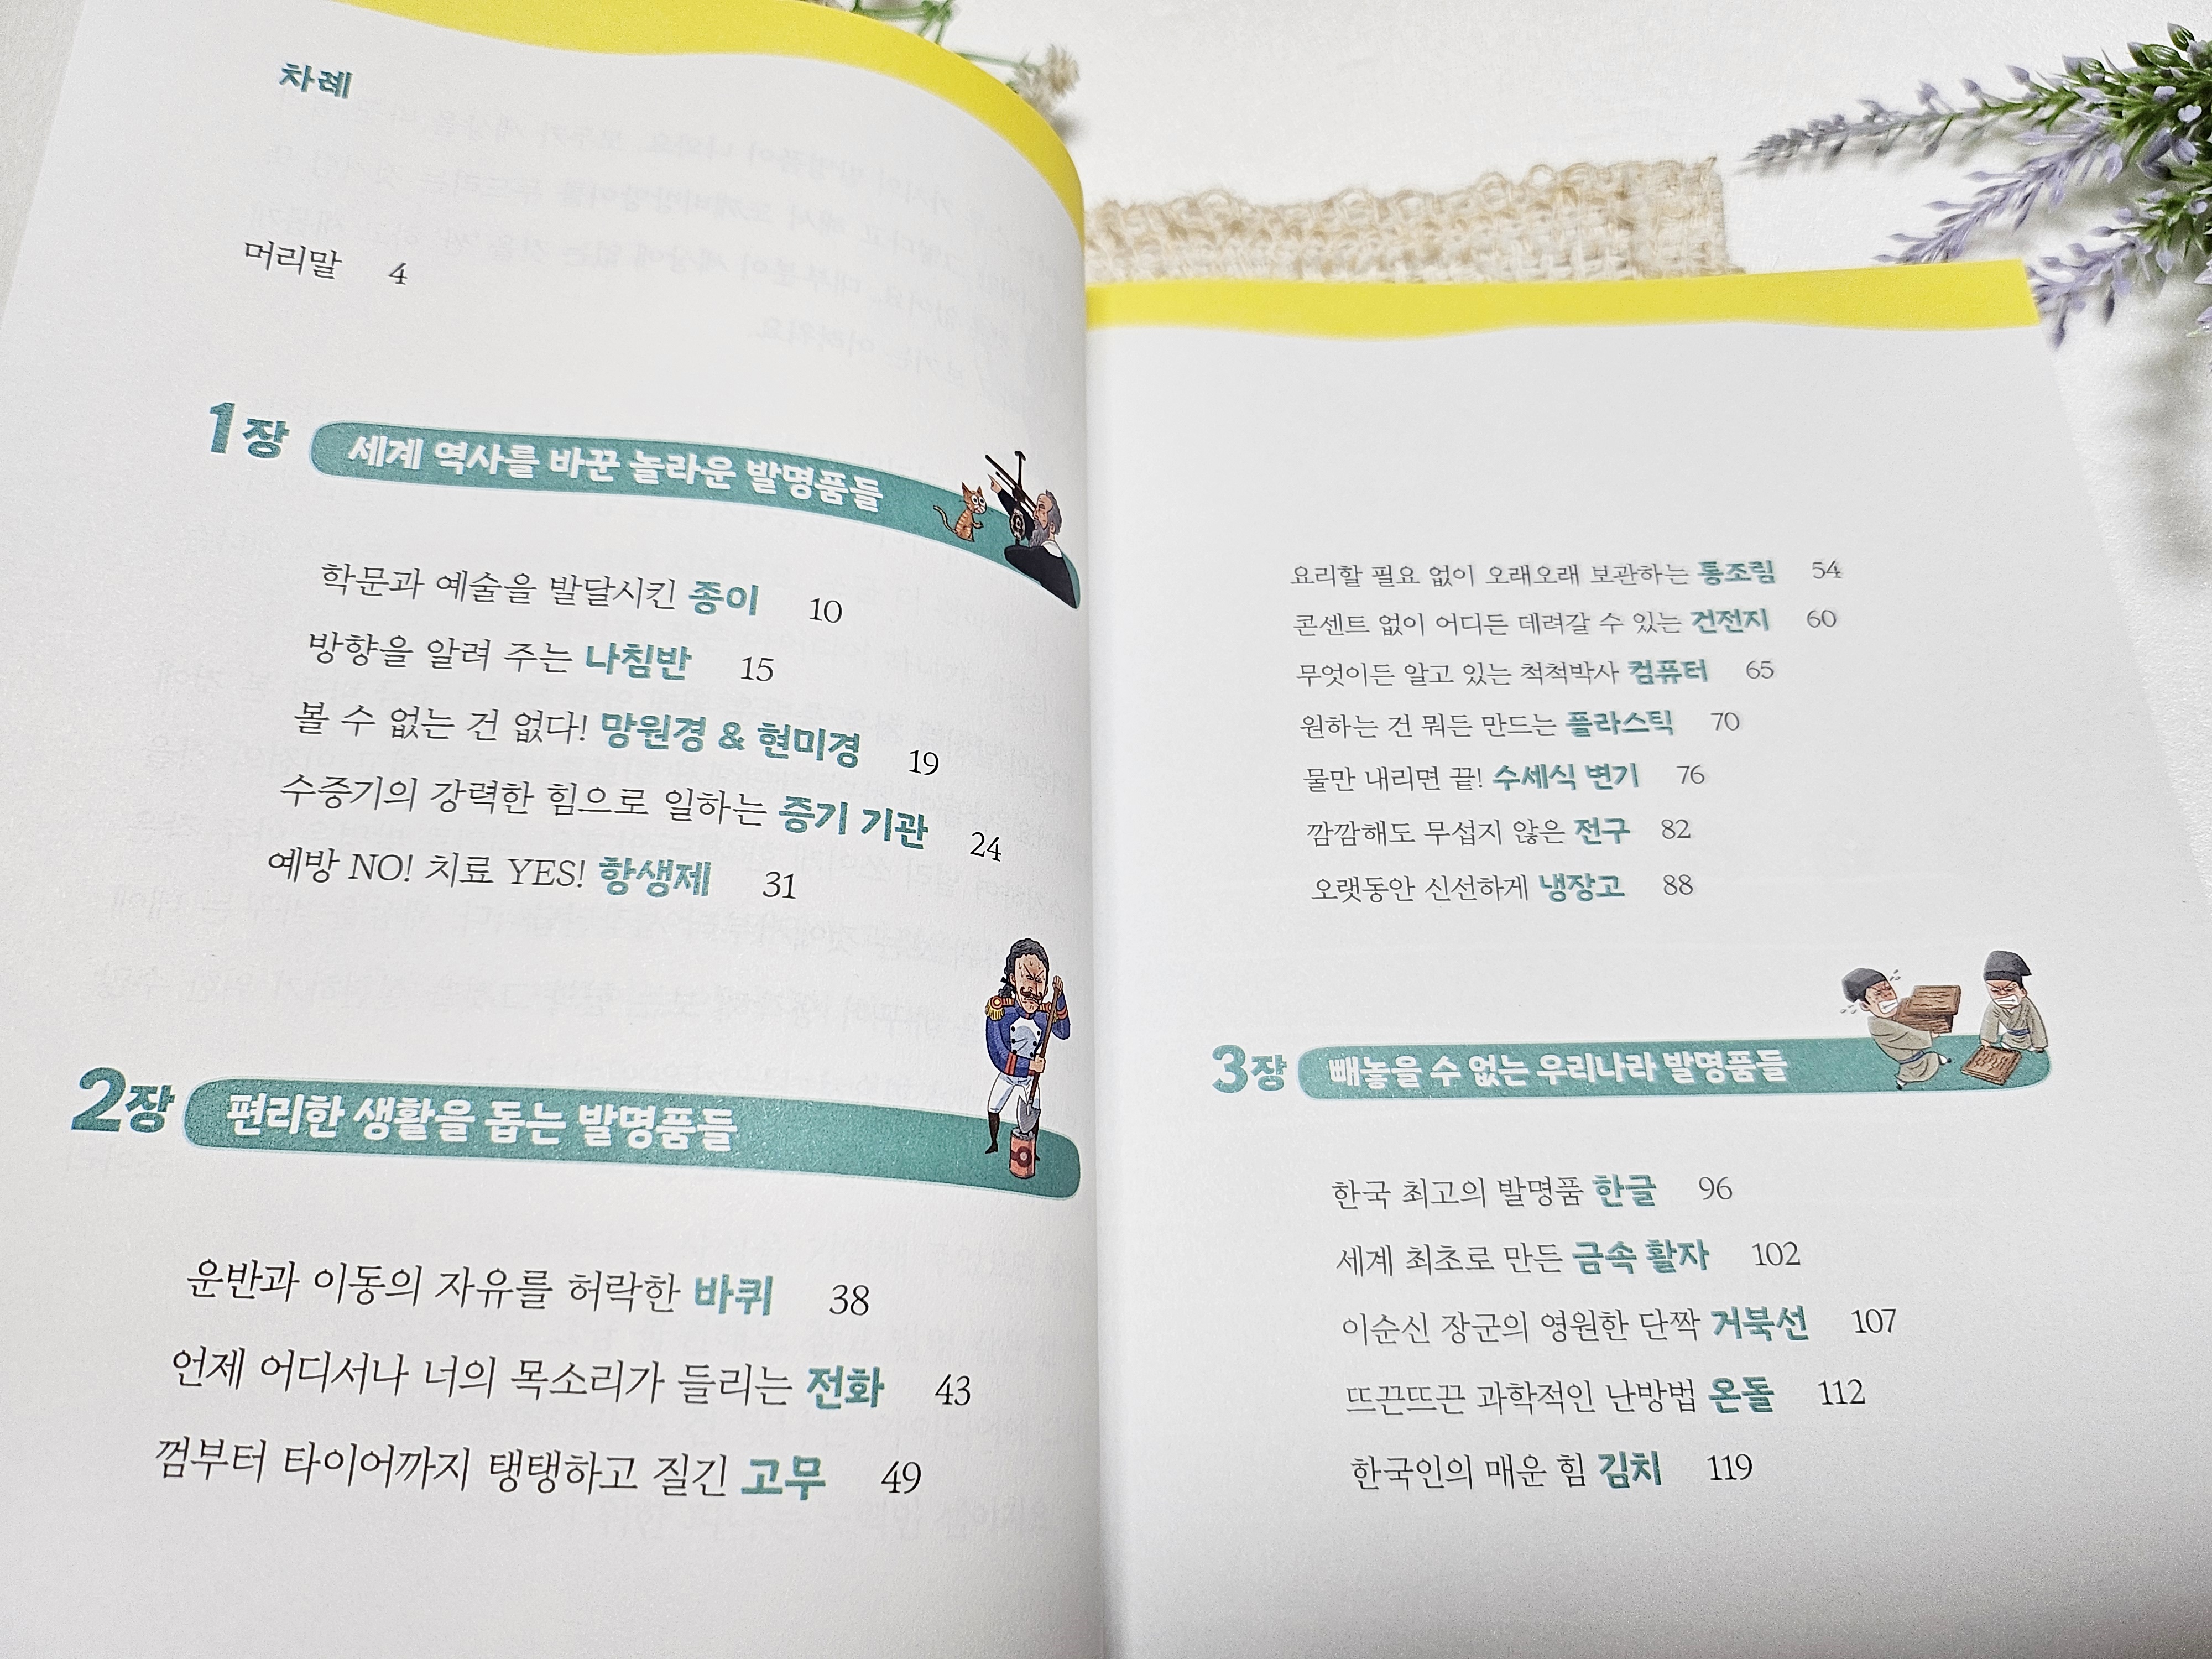 차례
머리말 4
1장 세계 역사를 바꾼 놀라운 발명품들
학문과 예술을 발달시킨 종이 10
방향을 알려 주는 나침반 15
볼 수 없는 건 없다! 망원경 & 현미경 19
수증기의 강력한 힘으로 일하는 증기 기관 24
예방 NO! 치료 YES! 항생제 31
2장 편리한 생활을 돕는 발명품들
운반과 이동의 자유를 허락한 바퀴 38
언제 어디서나 너의 목소리가 들리는 전화 43
껌부터 타이어까지 탱탱하고 질긴 고무 49
요리할 필요 없이 오래오래 보관하는 통조림 54
콘센트 없이 어디든 데려갈 수 있는 건전지 60
무엇이든 알고 있는 척척박사 컴퓨터 65
원하는 건 뭐든 만드는 플라스틱 70
물만 내리면 끝! 수세식 변기 76
깜깜해도 무섭지 않은 전구 82
오랫동안 신선하게 냉장고 88
3장 빼놓을 수 없는 우리나라 발명품들
한국 최고의 발명품 한글 96
세계 최초로 만든 금속 활자 102
이순신 장군의 영원한 단짝 거북선 107
뜨끈뜨끈 과학적인 난방법 온돌 112
한국인의 매운 힘 김치 119